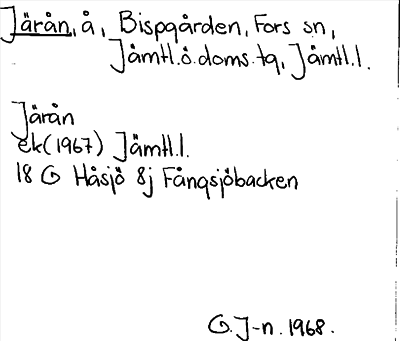 Järån, å, Bispgården, Fors sn,
Jämtl.ö.doms.tg, Jämtl.l.
Järån
ek(1967) Jämtl.l.
18 G Håsjö 8j Fångsjöbacken
G.J-n. 1968.